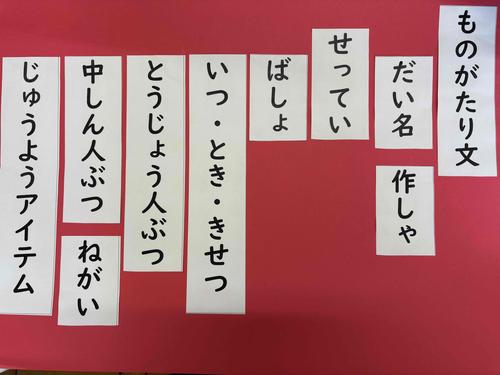 ものがたり文
だい名
作しゃ
せってい
ばしょ
いつ・とき・きせつ
とうじょう人ぶつ
中しん人ぶつ
ねがい
じゅうようアイテム